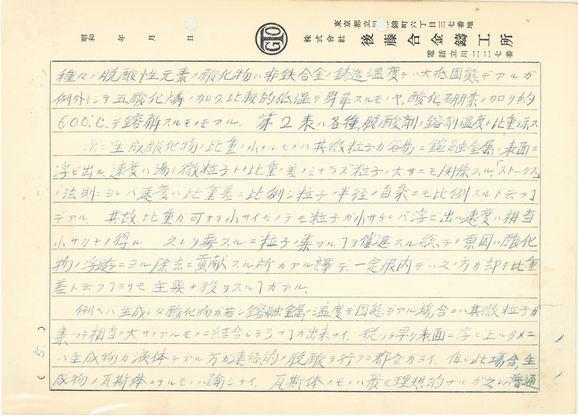 東京都立川市錦町六丁目三七番地
株式会社 後藤合金鋳工所
電話立川二二七番
昭和 年 月 日
種々ノ脱酸性元素ノ酸化物ハ非鉄合金ノ鋳造温度デハ大抵固態デアルガ
例外トシテ五酸化燐ノ如ク比較的低温デ昇華スルモノヤ、酸化硼素ノ如ク約
600℃デ鎔解スルモノモアル。 第2表ハ各種脱酸剤ノ鎔融温度ト比重ヲ示ス
次ニ生成酸化物ノ比重ノ小ナルモノハ其微粒子ガ容易ニ鎔融金属ノ表面ニ
浮ビ出ル速度ハ湯ト微粒子トノ比重ノ差ノミナラズ粒子ノ大サニモ関係スル「ストークス」
ノ法則ニヨレバ速度ハ比重差ニ比例シ粒子ノ半径ノ自乗ニモ比例スルト云フ
デアル 其故比重ガ可ナリ小サイモノデモ粒子ガ小サケレバ浮ビ出ル速度ハ相当
小サクナリ得ル 又要スルニ粒子ノ集マル ヲ催進スル総テノ原因ハ酸化
物ノ浮游ニヨル除去ニ貢献スル所ガアル譯デ一定限内デハ此ノ方ガ却テ比重
差ト云フ ヨリモ主要ナ役ヲスル ガアル
例ヘバ生成シタ酸化物ガ若シ鎔融金属ノ温度デ固態デアル場合ニハ其微粒子ガ
集ッテ相当ノ大サノアルモノニ結合シテ フ ガ出来ナイ、従ッテ早ク表面ニ浮ビ上ルタメニ
ハ生成物ガ液体デアル方ガ集結的ノ脱酸ヲ行フニ都合ガヨイ、但シ此場合生
成物ノ瓦斯体ノナルモノハ論シナイ、瓦斯体ノモノハ最モ理想的ナルガ之レ普通